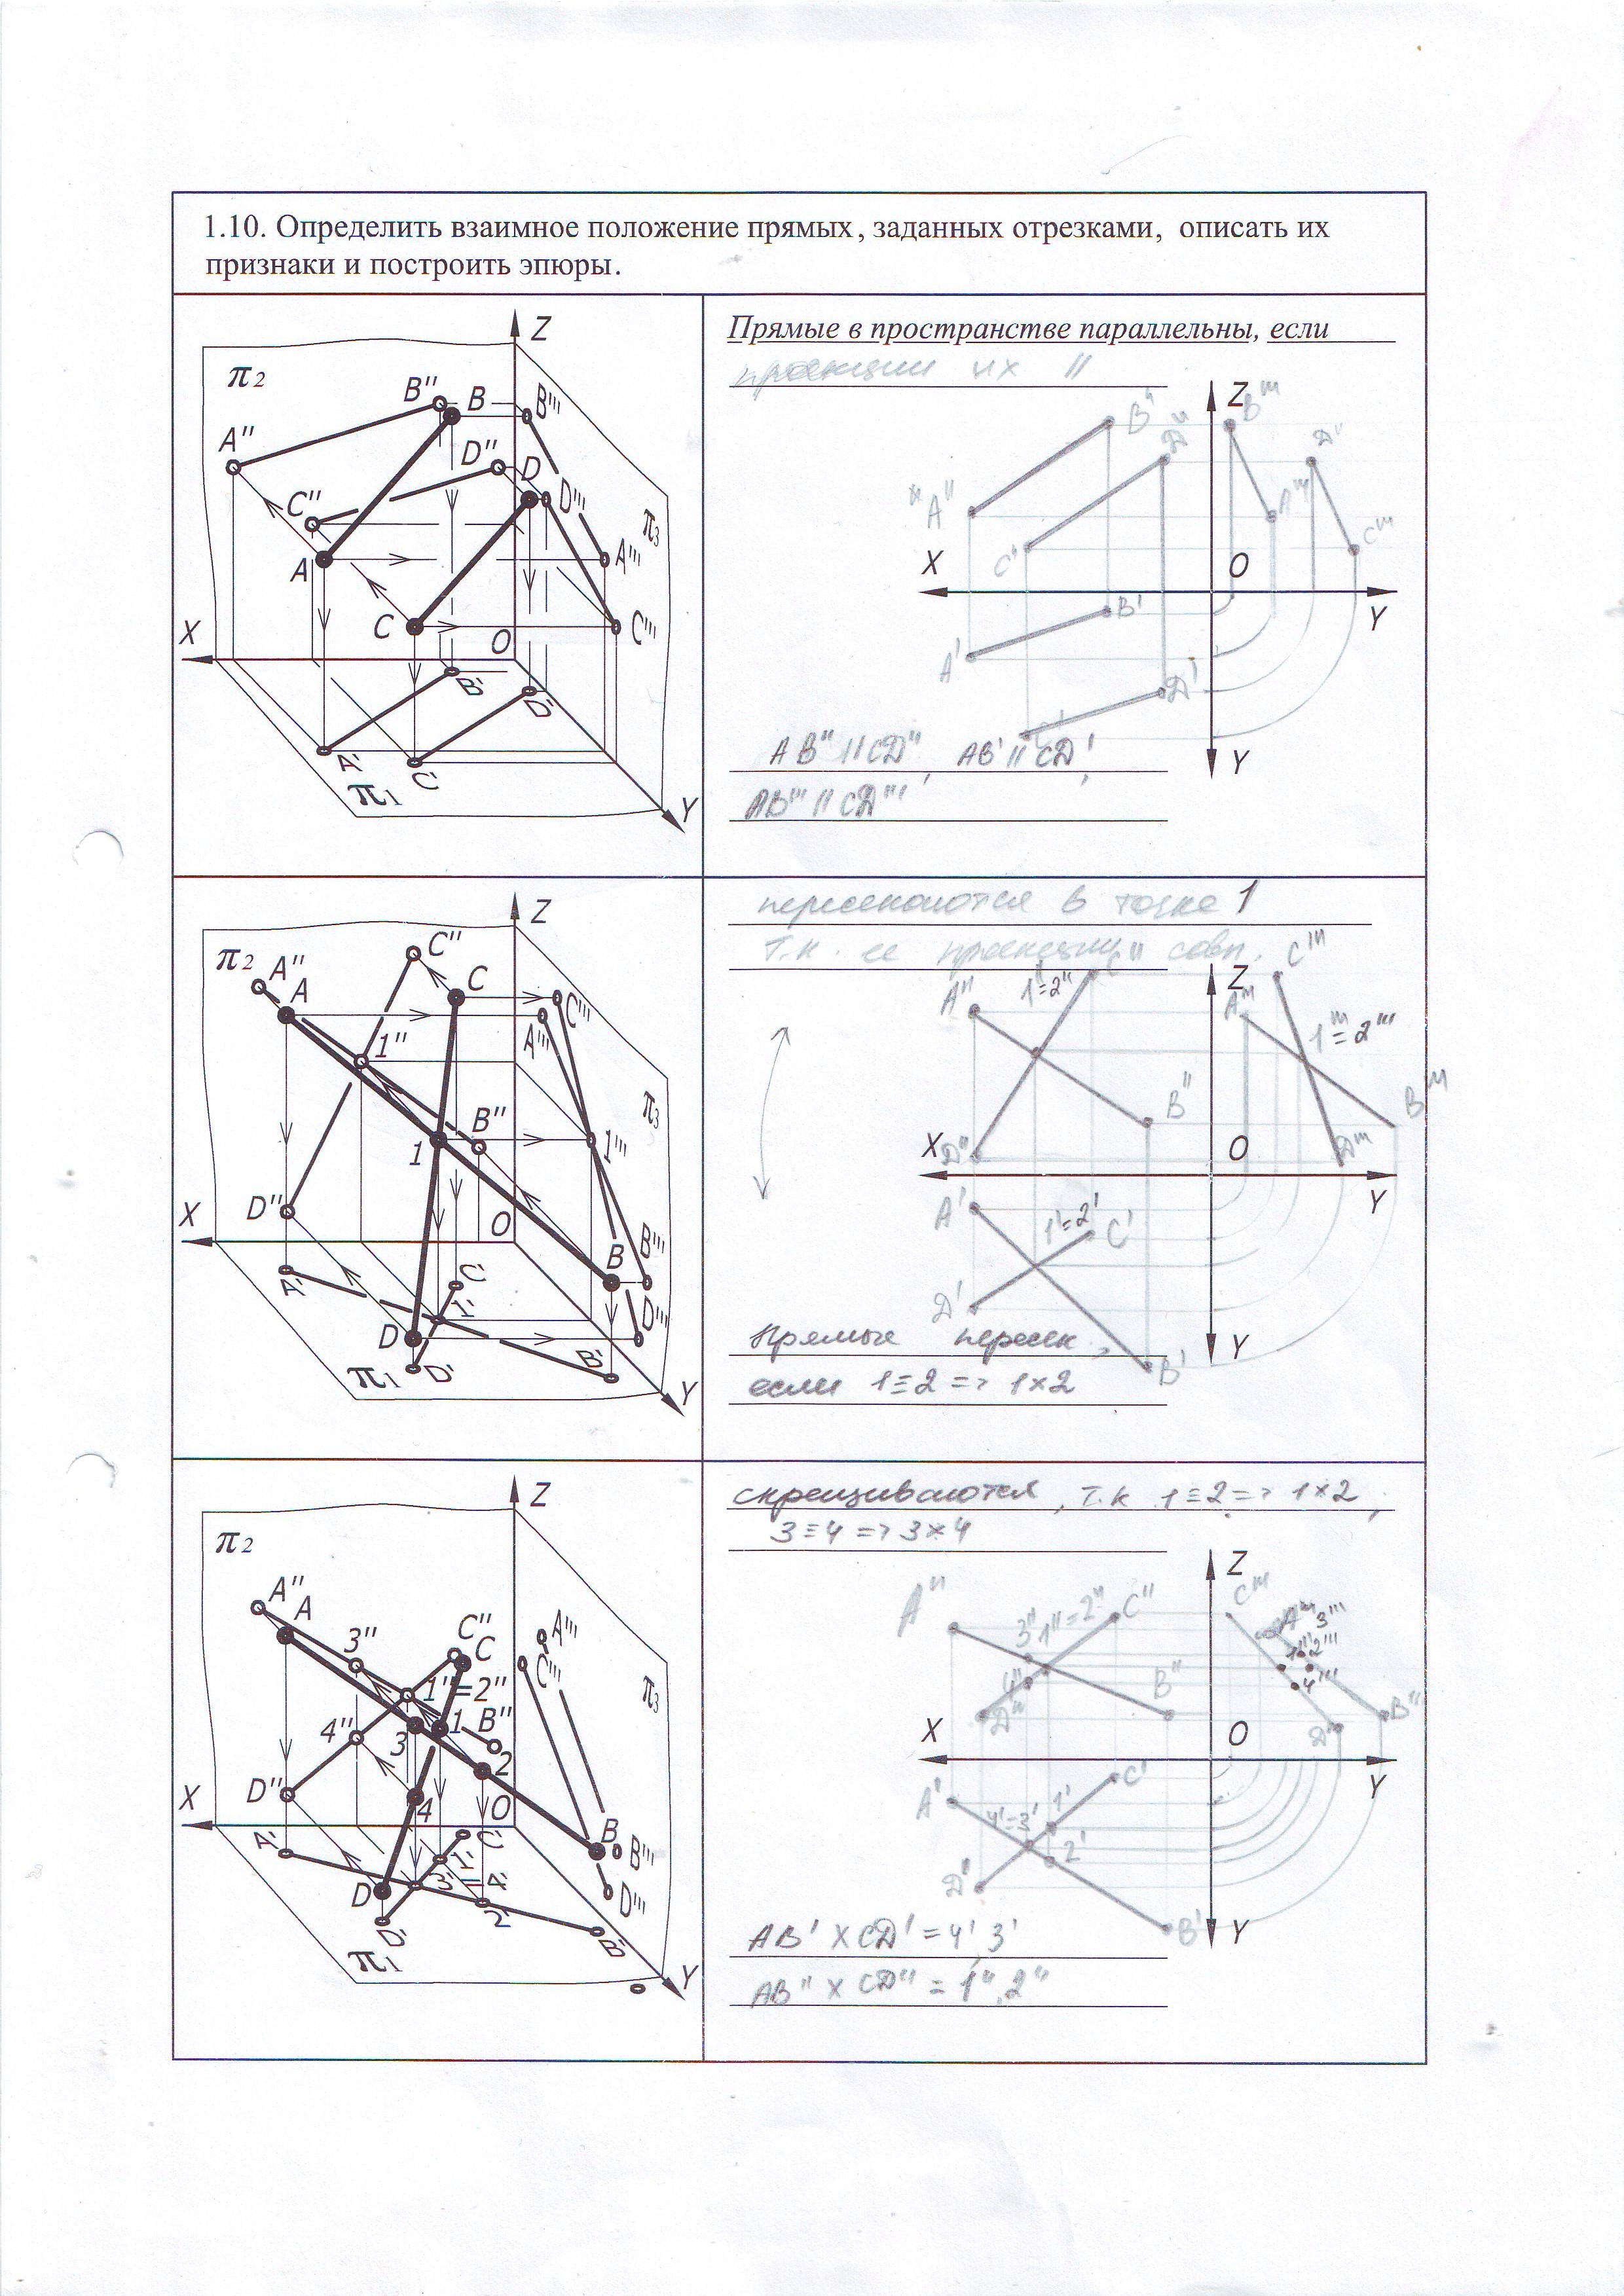 1.10. Определить взаимное положение прямых, заданных отрезками, описать их
признаки и построить эпюры.
Z
π2
B'' B B'''
A''
D'' D D'''
C''
π3
A A'''
C C'''
X O
B'
D'
A' C'
π1
Y
Прямые в пространстве параллельны, если
проекции их //
Z B'''
B''
D''
A'' A'''
C'' C'''
X O
Y
B'
A'
D'
AB'' // CD'', AB' // CD',
Y
AB''' // CD'''
Z
C''
π2 A'' A C
C'''
A'''
1''
π3
B''
1 1'''
D''
X O
B B'''
A' C'
1' D'''
D
π1 D' B'
Y
пересекаются в точке 1
т.к. ее проекции совп.
C'' C'''
Z
A'' 1''=2'' A'''
1'''=2'''
B'' B'''
X D'' O D'''
Y
A' 1'=2' C'
D'
Прямые пересек,
Y
B'
если 1≡2 => 1×2
Z
π2
A'' A
3'' C'' C A'''
C'''
1''=2'' π3
4'' 3 1 B''
2
D''
X 4 O
A' C' B B'''
1'
D 3'=4' D'''
D' 2'
B'
π1
Y
скрещиваются, т.к 1≡2 => 1×2,
3≡4 => 3×4
Z
C'''
A'' C''
3'' 1''=2'' A''' 3'''
1''' 2'''
4'' 4'''
D'' B''
X O
Y
A' C'
4'=3' 1'
2'
D'
B' Y
AB' × CD' = 4', 3'
AB'' × CD'' = 1'', 2''